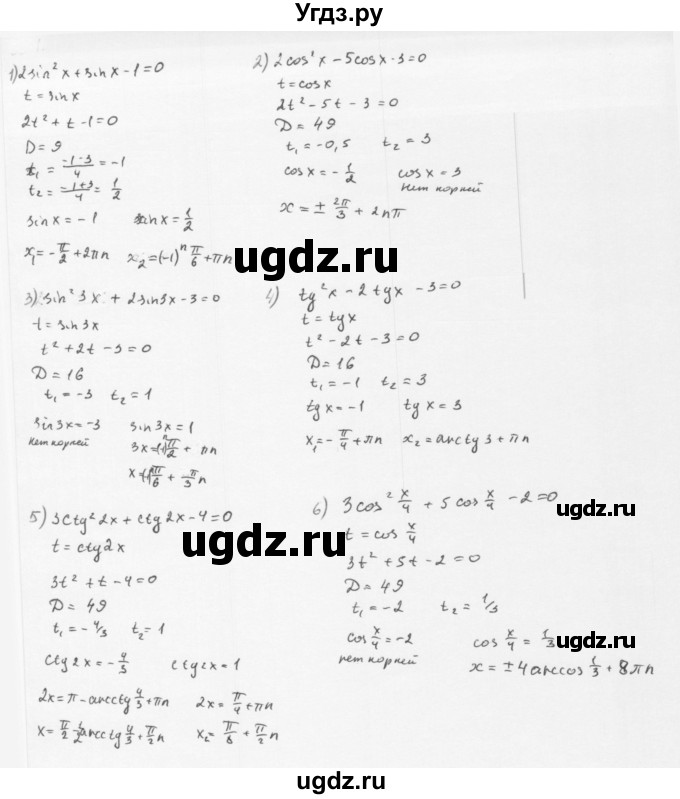 Угдз.ру
1) 2sin²x + sin x - 1 = 0
t = sin x
2t² + t - 1 = 0
D = 9
t₁ = (-1-3)/4 = -1
t₂ = (-1+3)/4 = 1/2
sin x = -1   sin x = 1/2
x₁ = -π/2 + 2πn   x₂ = (-1)ⁿ π/6 + πn
2) 2cos²x - 5cosx - 3 = 0
t = cosx
2t² - 5t - 3 = 0
D = 49
t₁ = -0,5   t₂ = 3
cos x = -1/2   cos x = 3
нет корней
x = ± 2π/3 + 2nπ
ugdz.ru
3) sin²3x + 2sin3x - 3 = 0
t = sin 3x
t² + 2t - 3 = 0
D = 16
t₁ = -3   t₂ = 1
sin3x = -3   sin3x = 1
нет корней   3x = (-1)ⁿ π/2 + πn
x = (-1)ⁿ π/6 + π/3 n
4) tg²x - 2tgx - 3 = 0
t = tgx
t² - 2t - 3 = 0
D = 16
t₁ = -1   t₂ = 3
tg x = -1   tg x = 3
x₁ = -π/4 + πn   x₂ = arctg 3 + πn
5) 3ctg²2x + ctg 2x - 4 = 0
t = ctg2x
3t² + t - 4 = 0
D = 49
t₁ = -4/3   t₂ = 1
ctg 2x = -4/3   ctg2x = 1
2x = π - arcctg 4/3 + πn   2x = π/4 + πn
x = π/2 - 1/2 arcctg 4/3 + π/2 n   x₂ = π/8 + π/2 n
ugdz.ru
6) 3cos² x/4 + 5 cos x/4 - 2 = 0
t = cos x/4
3t² + 5t - 2 = 0
D = 49
t₁ = -2   t₂ = 1/3
cos x/4 = -2   cos x/4 = 1/3
нет корней   x = ± 4arccos 1/3 + 8πn
ugdz.ru
ugdz.ru
ugdz.ru